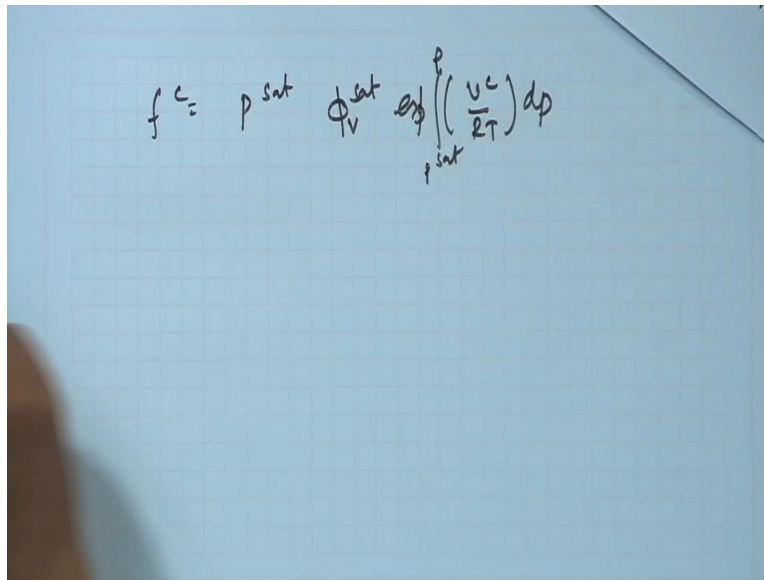 f^c = p^sat ϕ_V^sat exp ∫_{p^sat}^{p} (v^c / RT) dp